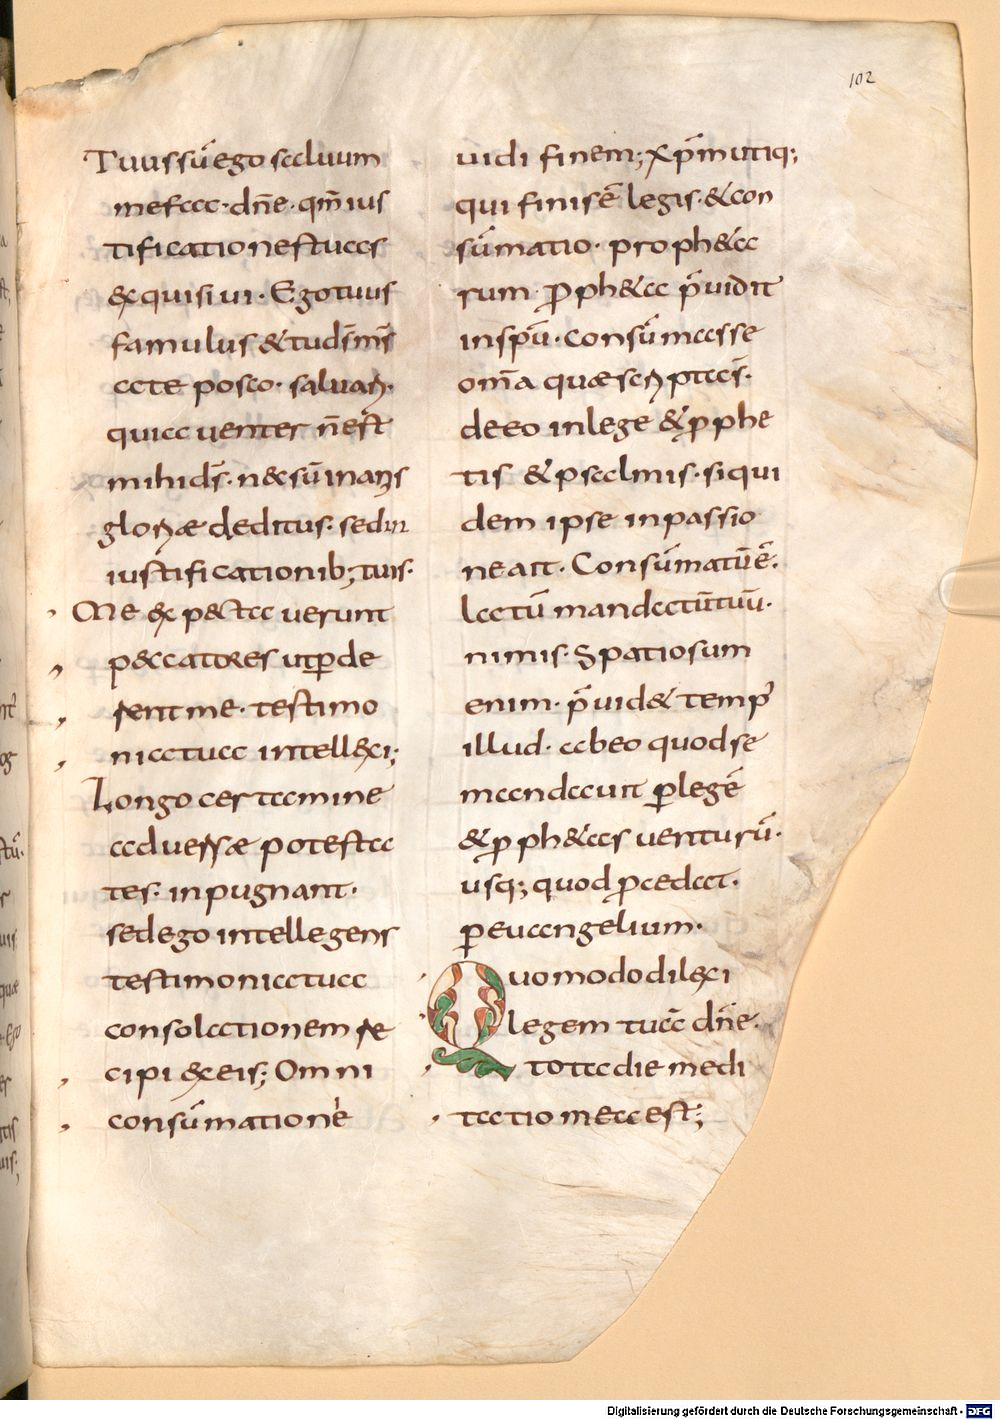 102
Tuus sū ego saluum
me fac· dn̄e· qm̄ ius
tificationes tuas
exquisiui· Ego tuus
famulus & tu ds̄ ms̄
a te posco· saluari·
quia uenter n̄ est
mihi ds̄· nec sū inanis
gloriæ deditus· sed in
iustificationib; tuis·
Me expectauerunt
peccatores ut ꝑde
rent me· testimo
nia tua intellexi;
Longo certamine
aduersæ potesta
tes· inpugnant·
sed ego intellegens
testimonia tua
consolationem re
cipi ex eis; Omni
consūmatione
uidi finem; xp̄m utiq;
qui finis ē legis· & con
sūmatio· propheta
rum· ꝓpheta p̄uidit
in spū· consūmasse
om̄a quæ scripta s̄·
de eo in lege & ꝓphe
tis & psalmis· siqui
dem ipse in passio
ne ait· Consūmatū ē·
Latū mandatū tuū·
nimis· Spatiosum
enim· p̄uidet temp'
illud· ab eo quod se
mandauit ꝑ legē
& ꝓphetas uenturū·
usq; quod ꝓcedat·
ꝑ euangelium·
Quomodo dilexi
legem tuā dn̄e·
tota die medi
tatio mea est;
Digitalisierung gefördert durch die Deutsche Forschungsgemeinschaft - DFG